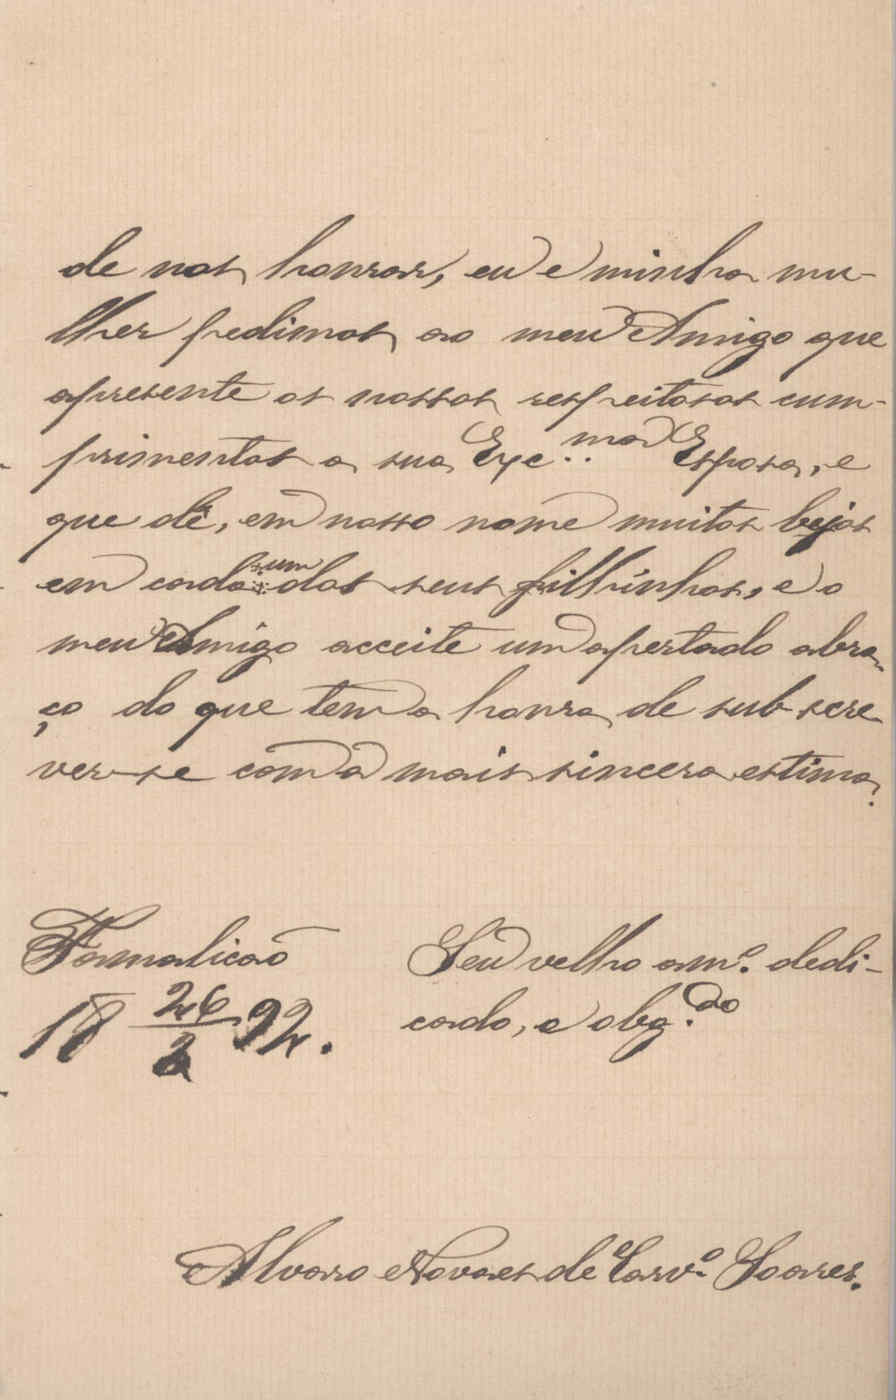 de nos honrar, eu e minha mu-
lher pedimos ao meu Amigo que
apresente os nossos respeitosos cum-
primentos a sua Exc.ma Esposa, e
que dê, em nosso nome muitos bejos
em cada um dos seus filhinhos, e o
meu Amigo acceite um apertado abra-
ço do que tem a honra de subscre-
ver-se com a mais sincera estima.
Famalicão
18 26/2 92.
Seu velho am.º dedi-
cado, e obg.do
Alvaro Novaes de Carv.º Soares.